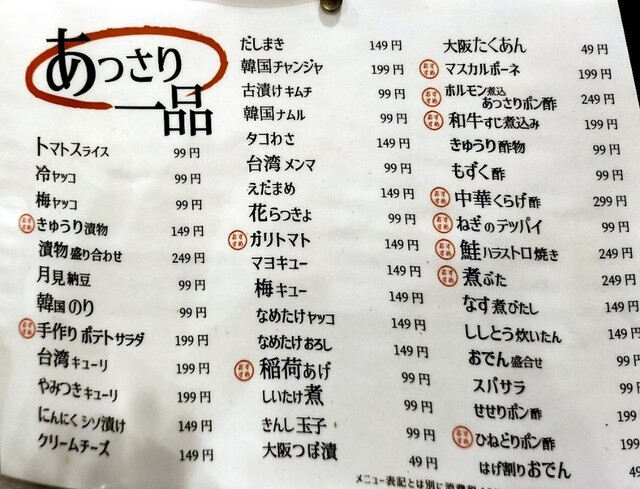 あっさり
一品
トマトスライス 99円
冷ヤッコ 99円
梅ヤッコ 99円
おすすめ きゅうり漬物 149円
漬物盛り合わせ 249円
月見納豆 99円
韓国のり 99円
おすすめ 手作りポテトサラダ 199円
台湾キューリ 199円
やみつきキューリ 199円
にんにくシソ漬け 149円
クリームチーズ 149円
だしまき 149円
韓国チャンジャ 199円
古漬けキムチ 99円
韓国ナムル 99円
タコわさ 149円
台湾メンマ 99円
えだまめ 149円
花らっきょ 99円
おすすめ ガリトマト 149円
マヨキュー 149円
梅キュー 149円
なめたけヤッコ 149円
なめたけおろし 149円
おすすめ 稲荷あげ 99円
しいたけ煮 99円
きんし玉子 99円
大阪つぼ漬 49円
大阪たくあん 49円
おすすめ マスカルポーネ 199円
おすすめ ホルモン煮込
あっさりポン酢 249円
おすすめ 和牛すじ煮込み 199円
きゅうり酢物 99円
もずく酢 99円
おすすめ 中華くらげ酢 299円
おすすめ ねぎのテッパイ 99円
おすすめ 鮭ハラストロ焼き 249円
おすすめ 煮ぶた 249円
なす煮びたし 149円
ししとう炊いたん 149円
おでん盛合せ 99円
スパサラ 99円
せせりポン酢 199
おすすめ ひねどりポン酢 199
はげ割りおでん 49
メニュー表記とは別に消費税